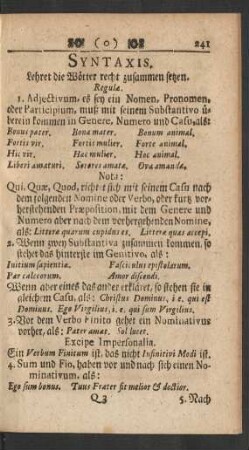 ( o ) 241
SYNTAXIS.
Lehret die Wörter recht zusammen setzen.
Regulæ.
1. Adjectivum, es sey ein Nomen, Pronomen,
oder Participium, muß mit seinem Substantivo ü-
berein kommen in Genere, Numero und Casu, als:
Bonus pater. Bona mater. Bonum animal.
Fortis vir. Fortis mulier. Forte animal.
Hic vir. Hæc mulier. Hoc animal.
Liberi amaturi. Sorores amatæ. Ova amanda.
Nota:
Qui, Quæ, Quod, richt t sich mit seinem Casu nach
dem folgenden Nomine oder Verbo, oder kurtz vor-
herstehenden Præposition, mit dem Genere und
Numero aber nach dem vorhergehenden Nomine,
als: Litteræ quarum cupidus es, Litteræ quas accepi.
2. Wenn zwey Substantiva zusammen kommen, so
stehet das hinterste im Genitivo, als:
Initium sapientiæ. Fasciculus epistolarum.
Par calceorum. Amor discendi.
Wenn aber eines das ander erkläret, so stehen sie in
gleichem Casu, als: Christus Dominus, i. e. qui est
Dominus. Ego Virgilius, i. e. qui sum Virgilius.
3. Vor dem Verbo Finito gehet ein Nominativus
vorher, als: Pater amat. Sol lucet.
Excipe Impersonalia.
Ein Verbum Finitum ist, das nicht Infinitivi Modi ist.
4. Sum und Fio, haben vor und nach sich einen No-
minativum, als:
Ego sum bonus. Tuus Frater sit melior & doctior.
Q 3 5. Nach